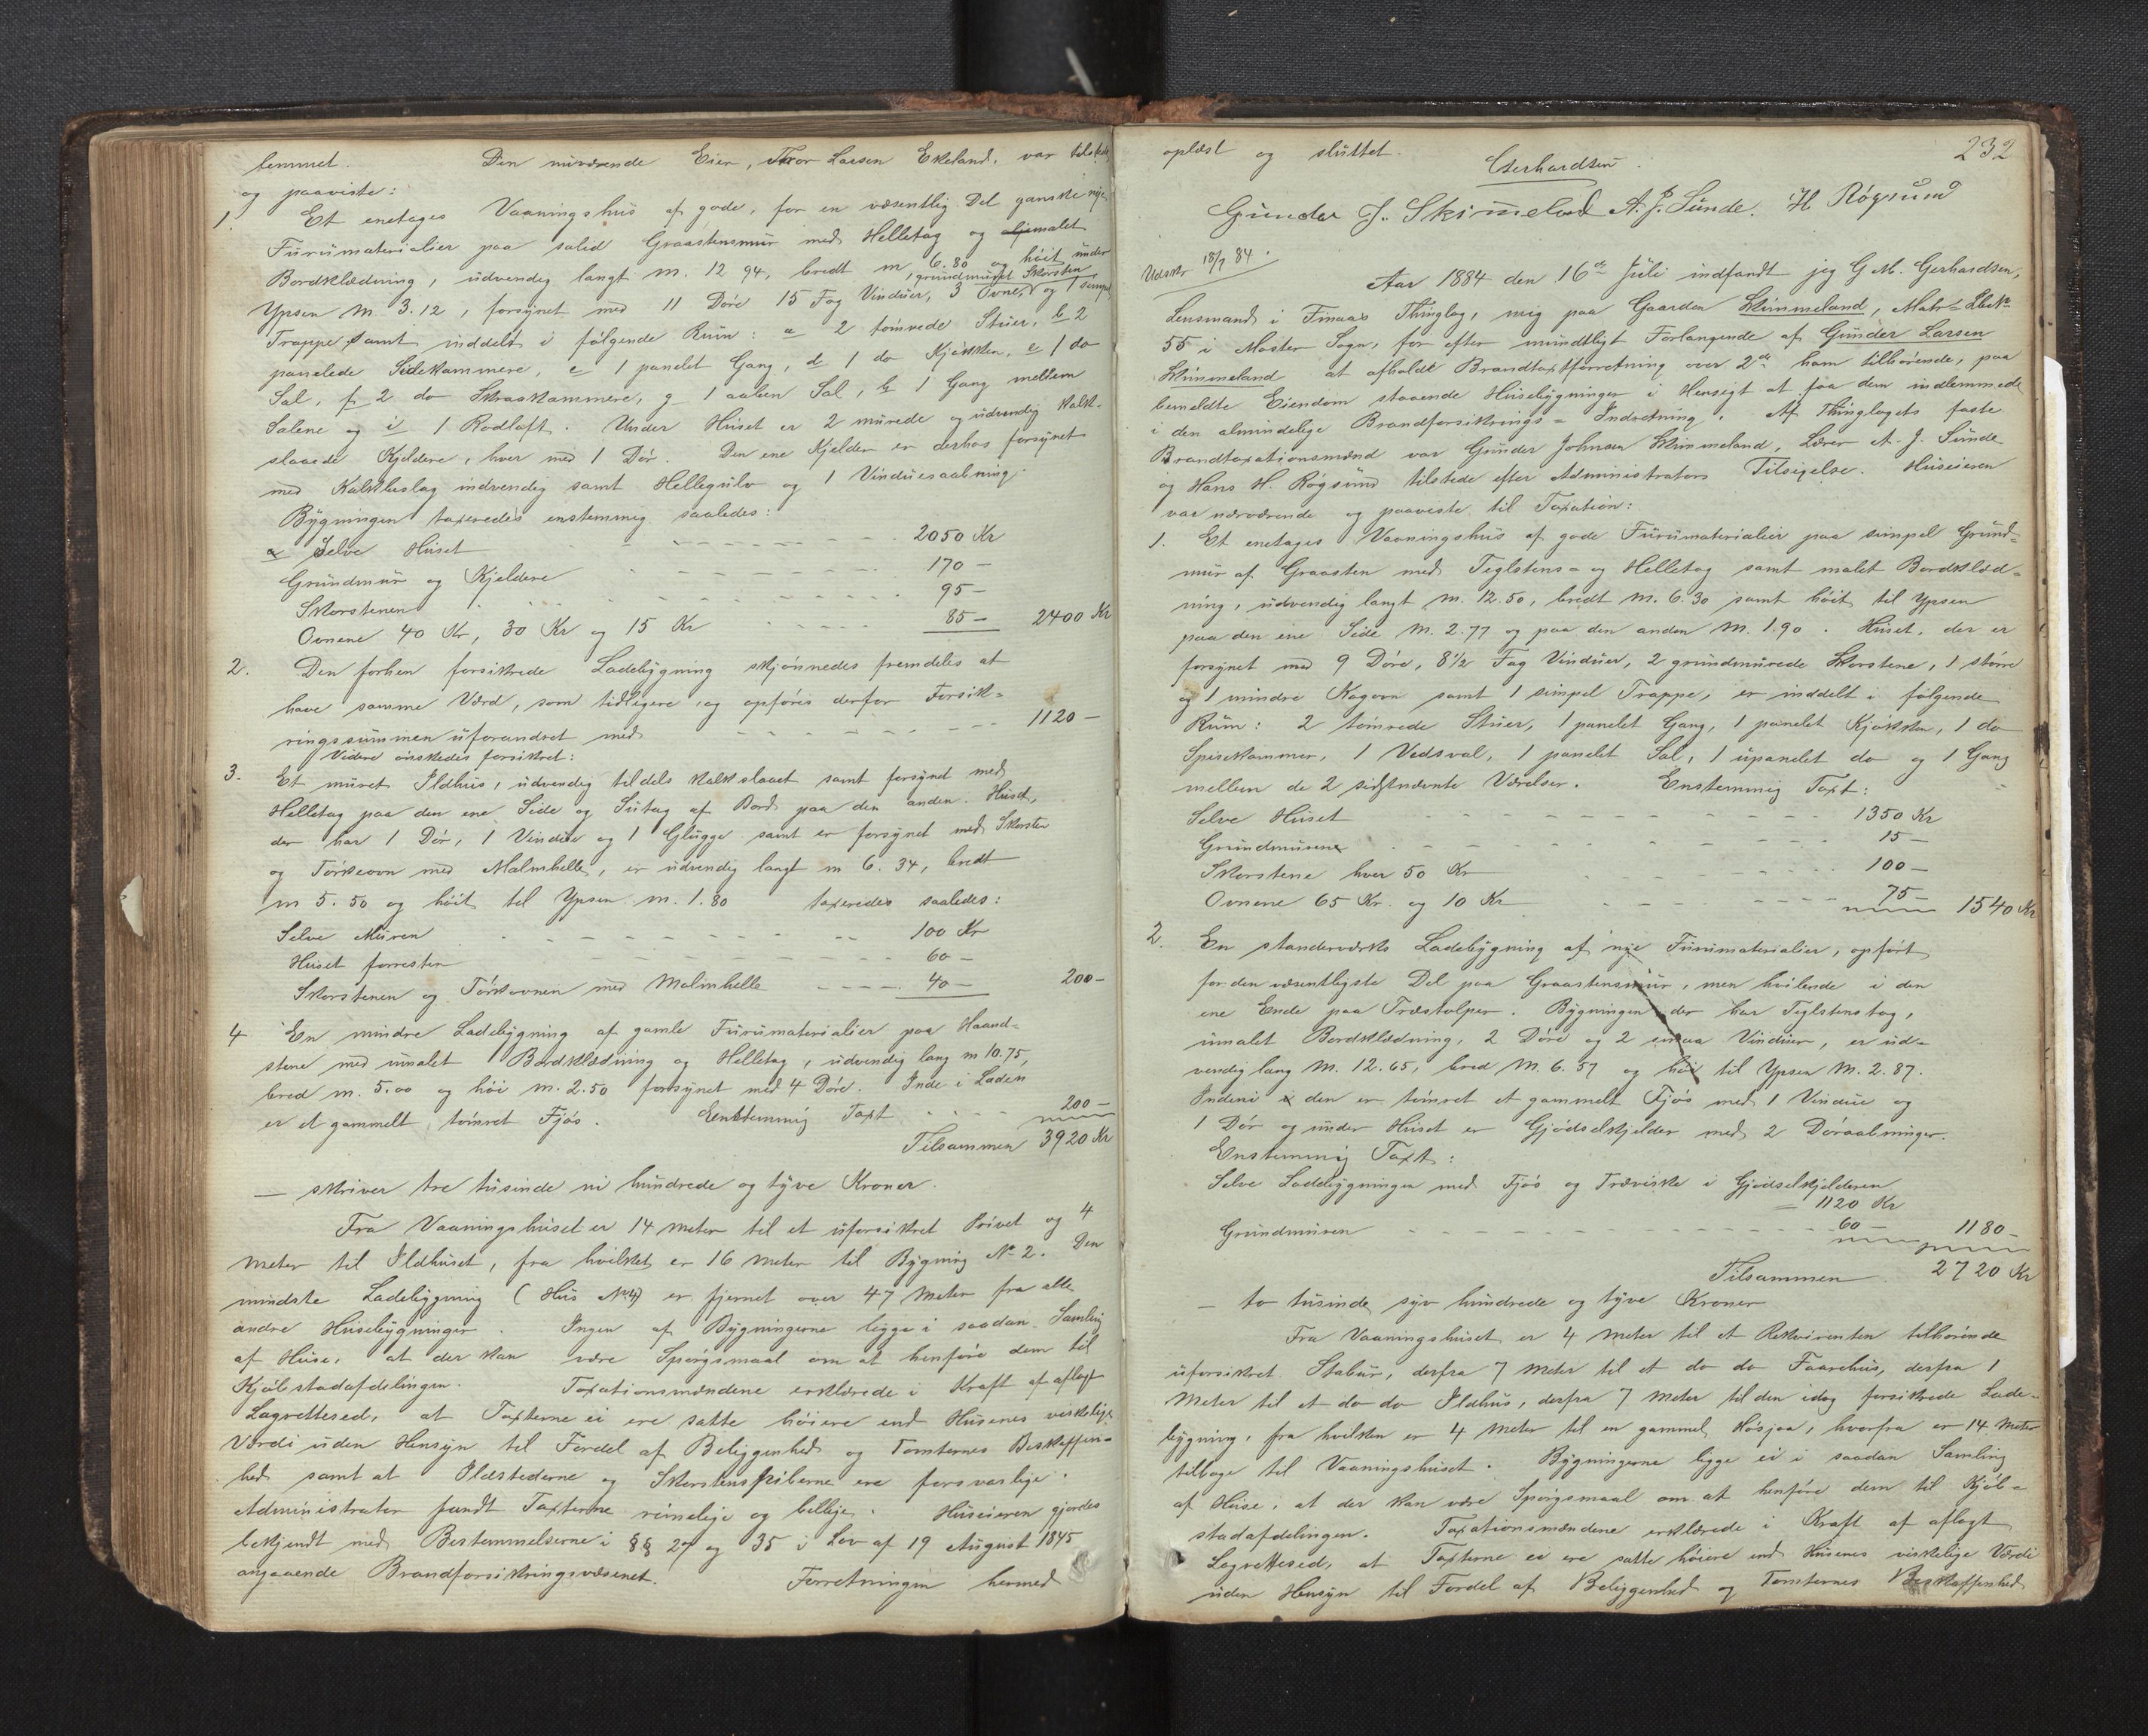 lemmet. Den nuværende Eier, Thor Larsen Ekeland, var tilstede
og paaviste:
1. Et enetages Vaaningshus af gode, for en væsentlig Del ganske nye
Furumaterialier paa solid Graastensmur med Helletag og malet
Bordklædning, udvendig langt m. 12 94, bredt m 6.80 og höit under
Ypsen m. 3.12, forsynet med 11 Döre 15 Fag Vinduer, 3 Ovne, grundmuret Skorsten og 1 simpel
Trappe samt inddelt i fölgende Rum: a 2 tömrede Stuer, b 2
panelede Sidekammere, c 1 panelet Gang, d 1 do Kjökken, e 1 do
Sal, f 2 do Skraakammere, g 1 aaben Sal, h 1 Gang mellem
Salene og i 1 Rodloft. Under Huset er 2 murede og udvendig kalk-
slaaede Kjeldere, hver med 1 Dör. Den ene Kjelder er derhos forsynet
med Kalkbeslag indvendig samt Hellegulv og 1 Vinduesaabning.
Bygningen taxeredes enstemmig saaledes:
a Selve Huset 2050 Kr
Grundmur og Kjeldere 170 -
Skorstenen 95 -
Ovnene 40 Kr, 30 Kr og 15 Kr 85 - 2400 Kr
2. Den forhen forsikrede Ladebygning skjönnedes fremdeles at
have samme Værd, som tidligere, og opföres derfor Forsik-
ringssummen uforandret med 1120 -
Videre önskedes forsikret:
3. Et muret Ildhus, udvendig tildels kalkslaaet samt forsynet med
Helletag paa den ene Side og Sutag af Bord paa den anden. Huset,
der har 1 Dör, 1 Vindue og 1 Glugge samt er forsynet med Skorsten
og Törkeovn med Malmhelle, er udvendig langt m 6.34, bredt
m 5.50 og höit til Ypsen m. 1.80 taxeredes saaledes:
Selve Muren 100 Kr
Huset forresten 60 -
Skorstenen og Törkeovnen med Malmhelle 40 - 200 -
4 En mindre Ladebygning af gamle Furumaterialier paa Haand-
stene med umalet Bordklædning og Helletag, udvendig lang m 10.75,
bred m. 5.00 og höi m. 2.50 forsynet med 4 Döre. Inde i Laden
er et gammelt tömret Fjös. Eenstemmig Taxt 200 -
Tilsammen 3920 Kr
— skriver tre tusinde ni hundrede og tyve Kroner.
Fra Vaaningshuset er 14 Meter til et uforsikret Privet og 4
Meter til Ildhuset, fra hvilket er 16 Meter til Bygning No 2. Den
mindste Ladebygning (Hus No 4) er fjernet over 47 Meter fra alle
andre Husebygninger. Ingen af Bygningerne ligge i saadan Samling
af Huse, at der kan være Spörgsmaal om at henföre dem til
Kjöbstadafdelingen. Taxationsmændene erklærede i Kraft af aflagt
Lagrettesed, at Taxterne ei ere satte höiere end Husenes virkelige
Værdi uden Hensyn til Fordel af Beliggenhed og Tomternes Beskaffen-
hed samt at Ildstederne og Skorstenspiberne ere forsvarlige.
Administrator fandt Taxterne rimelige og billige. Huseieren gjordes
bekjendt med Bestemmelserne i §§ 27 og 35 i Lov af 19 August 1845
angaaende Brandforsikringsvæsenet. Forretningen hermed
232
oplæst og sluttet.
Gerhardsen.
Gunder J. Skimmeland A. J. Sünde. H Rögsund
Udskr 18/7 84.
Aar 1884 den 16de Juli indfandt jeg G M. Gerhardsen,
Lensmand i Finaas Thinglag, mig paa Gaarden Skimmeland, Matr-Lbeno
55 i Moster Sogn, for efter mundtligt Forlangende af Gunder Larsen
Skimmeland at afholde Brandtaxtforretning over 2de ham tilhörende, paa
bemeldte Eiendom staaende Husebygninger i Hensigt at faa dem indlemmede
i den almindelige Brandforsikrings-Indretning. Af Thinglagets faste
Brandtaxationsmænd var Gunder Johnsen Skimmeland, Lærer A. J. Sünde
og Hans H. Rögsund tilstede efter Administrators Tilsigelse. Huseieren
var nærværende og paaviste til Taxation:
1. Et enetages Vaaningshus af gode Furumaterialier paa simpel Grund-
mur af Graasten med Teglstens- og Helletag samt malet Bordklæd-
ning, udvendig langt m. 12.50, bredt m. 6.30 samt höit til Ypsen
paa den ene Side m. 2.77 og paa den anden m. 1.90. Huset, der er
forsynet med 9 Döre, 8½ Fag Vinduer, 2 grundmurede Skorstene, 1 större
og 1 mindre Kogovn samt 1 simpel Trappe, er inddelt i fölgende
Rum: 2 tömrede Stuer, 1 panelet Gang, 1 panelet Kjökken, 1 do
Spisekammer, 1 Vedsval, 1 panelet Sal, 1 upanelet do og 1 Gang
mellem de 2 sidstnævnte Værelser. Enstemmig Taxt:
Selve Huset 1350 Kr
Grundmurene 15 -
Skorstene hver 50 Kr 100 -
Ovnene 65 Kr. og 10 Kr 75 - 1540 Kr
2. En standerværks Ladebygning af nye Furumaterialier, opfört
for den væsentligste Del paa Graastensmur, men hvilende i den
ene Ende paa Træstolper. Bygningen der har Teglstenstag,
umalet Bordklædning, 2 Döre og 2 smaa Vinduer, er ud-
vendig lang m. 12.65, bred m. 6.57 og höi til Ypsen m. 2.87.
Indeni den er tömret et gammelt Fjös med 1 Vindue og
1 Dör og under Huset er Gjödselkjelder med 2 Döraabninger.
Enstemmig Taxt:
Selve Ladebygningen med Fjös og Træviske i Gjödselkjelderen
1120 Kr
Grundmuren 60 - 1180 -
Tilsammen 2720 Kr
— to tusinde syv hundrede og tyve Kroner
Fra Vaaningshuset er 4 Meter til et Rekvirenten tilhörende
uforsikret Stabur, derfra 7 Meter til et do do Faarehus, derfra 1
Meter til et do do Ildhus, derfra 7 Meter til den idag forsikrede Lade-
bygning, fra hvilken er 4 Meter til en gammel Hösjaa, hvorfra er 14 Meter
tilbage til Vaaningshuset. Bygningerne ligge ei i saadan Samling
af Huse, at der kan være Spörgsmaal om at henföre dem til Kjöb-
stadafdelingen. Taxationsmændene erklærede i Kraft af aflagt
Lagrettesed, at Taxterne ei ere satte höiere end Husenes virkelige Værdi
uden Hensyn til Fordel af Beliggenhed og Tomternes Beskaffenhed